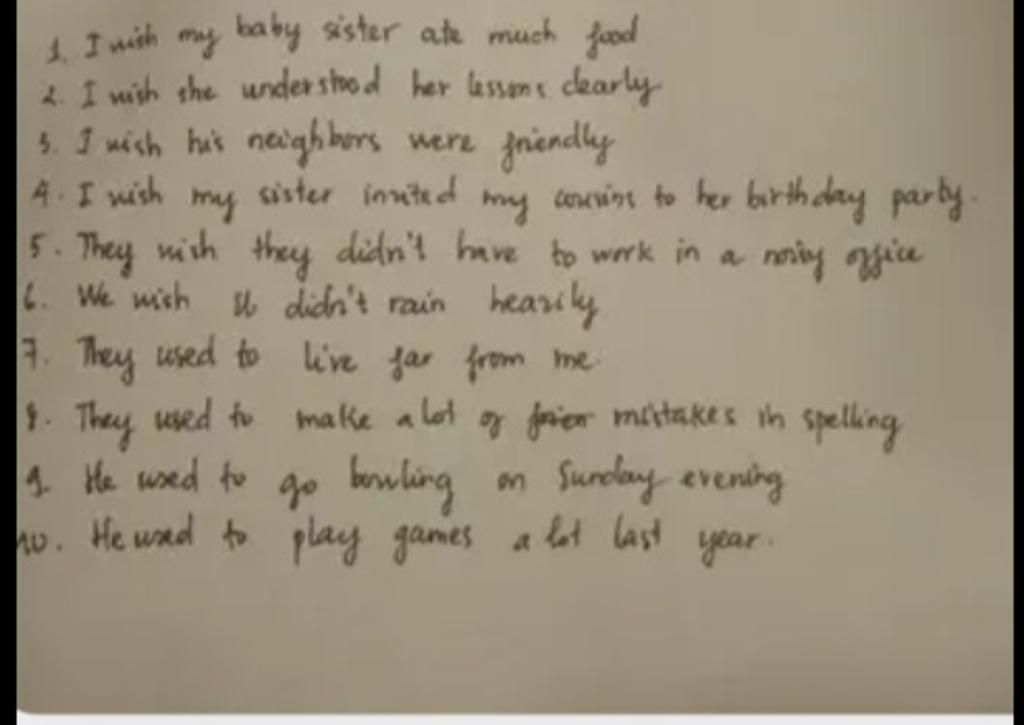 1. I wish my baby sister ate much food
2. I wish she understood her lessons clearly
3. I wish his neighbors were friendly
4. I wish my sister invited my cousins to her birthday party.
5. They wish they didn't have to work in a noisy office
6. We wish it didn't rain heavily
7. They used to live far from me.
8. They used to make a lot of mistakes in spelling
9. He used to go bowling on Sunday evening
10. He used to play games a lot last year.